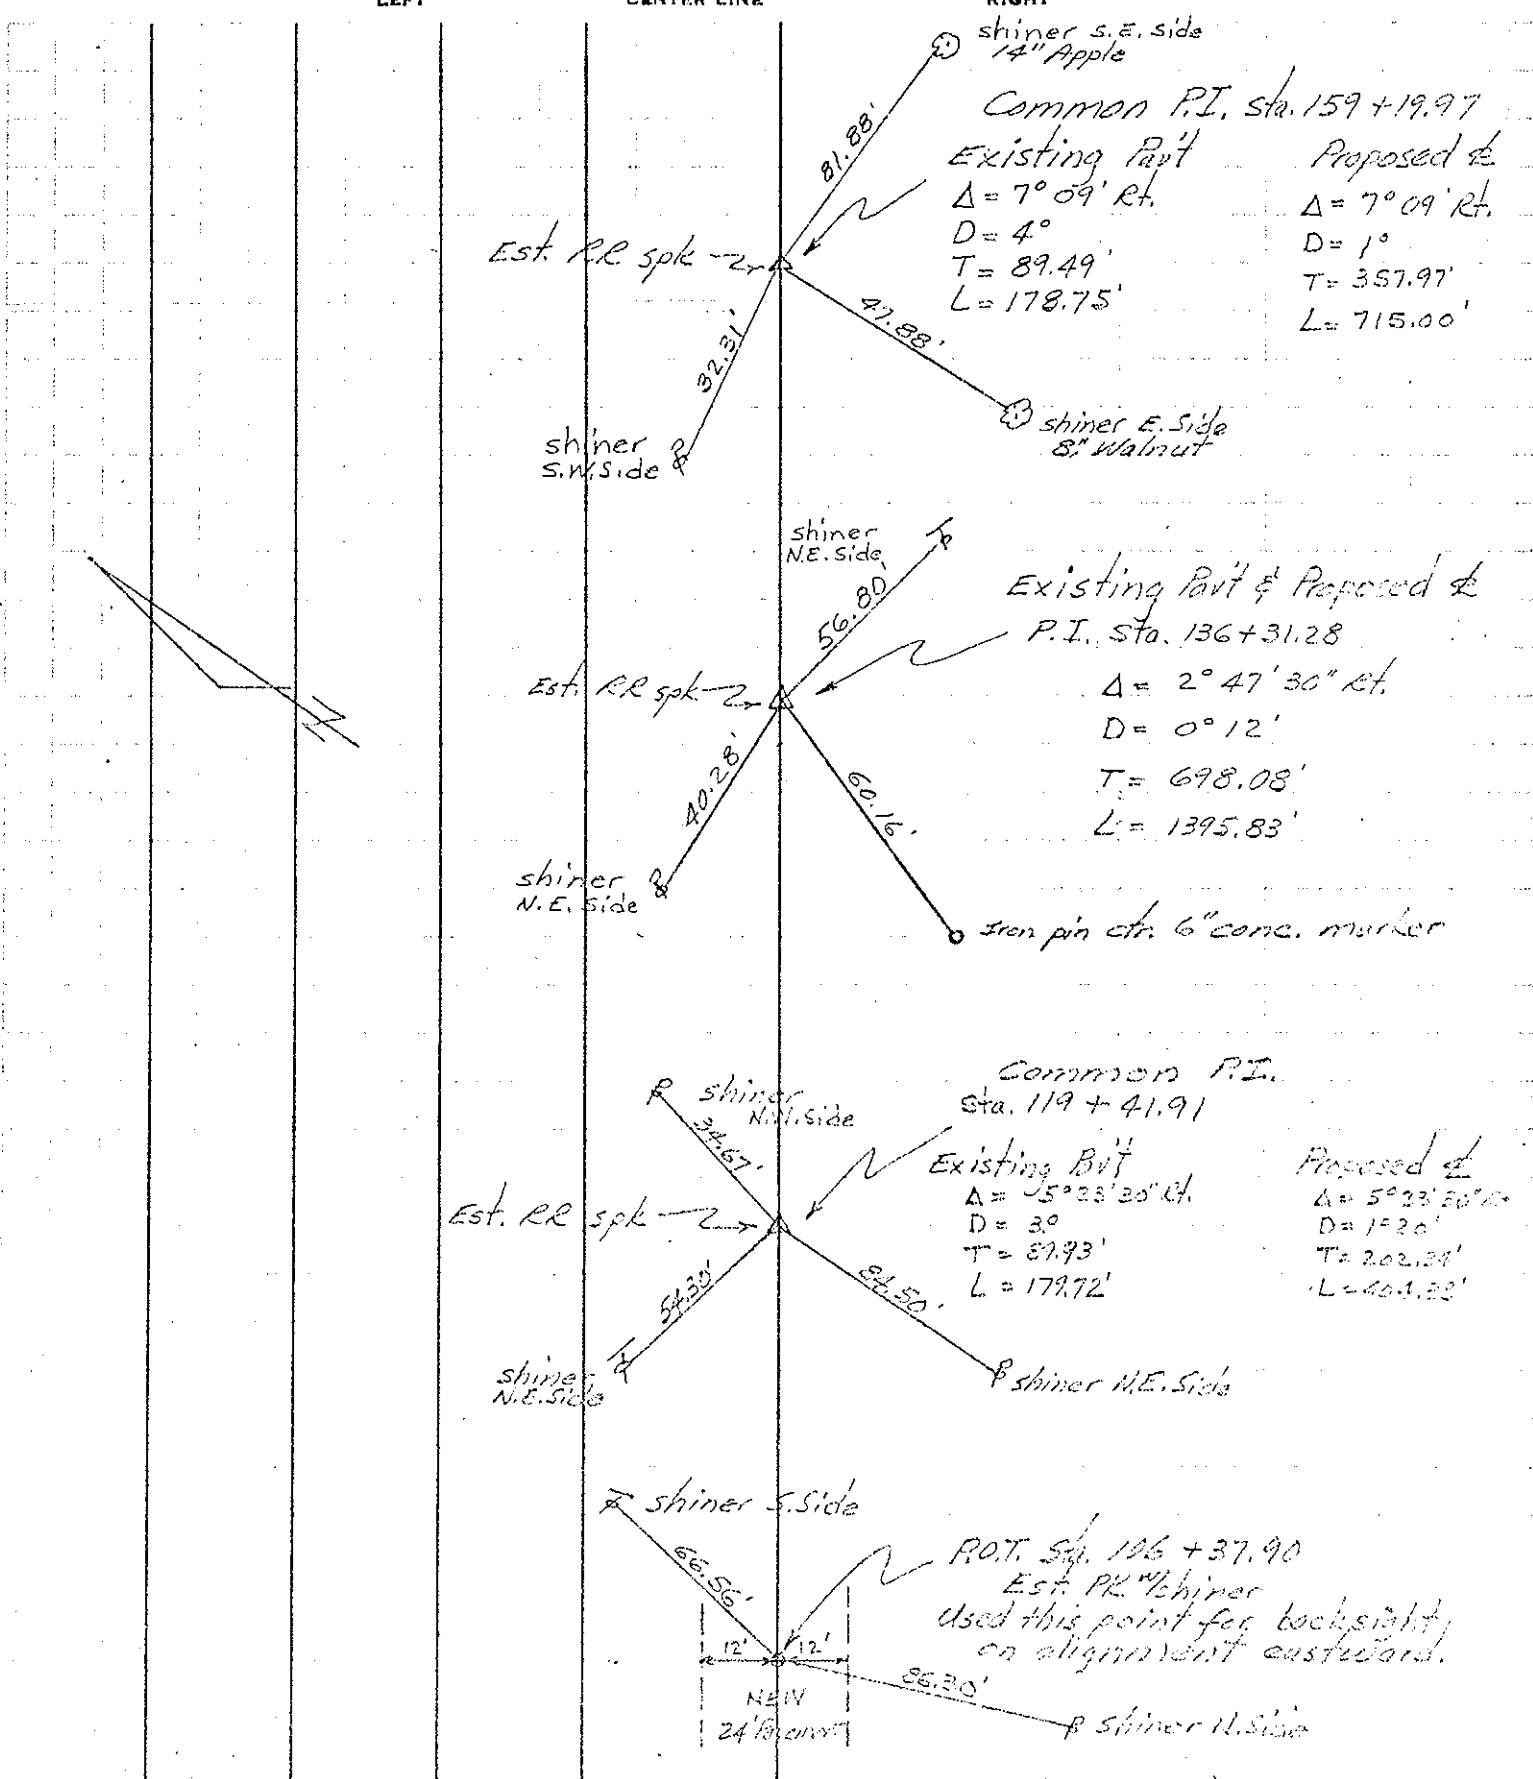 LEFT
CENTER LINE
RIGHT
shiner S.E. side
14" Apple
81.88'
Common P.I. sta. 159 + 19.97
Existing Pav't
Δ = 7° 09' Rt.
D = 4°
T = 89.49'
L = 178.75'
Proposed ℄
Δ = 7° 09' Rt.
D = 1°
T = 357.97'
L = 715.00'
Est. RR spk
47.88'
32.31'
shiner E. Side
8" Walnut
shiner
S.W. Side
shiner
N.E. Side
56.80'
Existing Pav't & Proposed ℄
P.I. Sta. 136 + 31.28
Δ = 2° 47' 30" Rt.
D = 0° 12'
T = 698.08'
L = 1395.83'
Est. RR spk
N
40.28'
60.16'
shiner
N.E. Side
Iron pin ctr. 6" conc. marker
shiner
N.W. Side
34.67'
Common P.I.
Sta. 119 + 41.91
Existing Pav't
Δ = 5° 23' 30" Rt.
D = 3°
T = 89.93'
L = 179.72'
Proposed ℄
Δ = 5° 23' 30" Rt
D = 1° 20'
T = 202.34'
L =
Est. RR spk
54.30'
84.50'
shiner
N.E. Side
shiner N.E. Side
shiner S. Side
66.56'
P.O.T. Sta. 106 + 37.90
Est. PK w/shiner
Used this point for backsight
on alignment eastward.
12' 12'
86.30'
NEW
24' Pavement
shiner N. Side